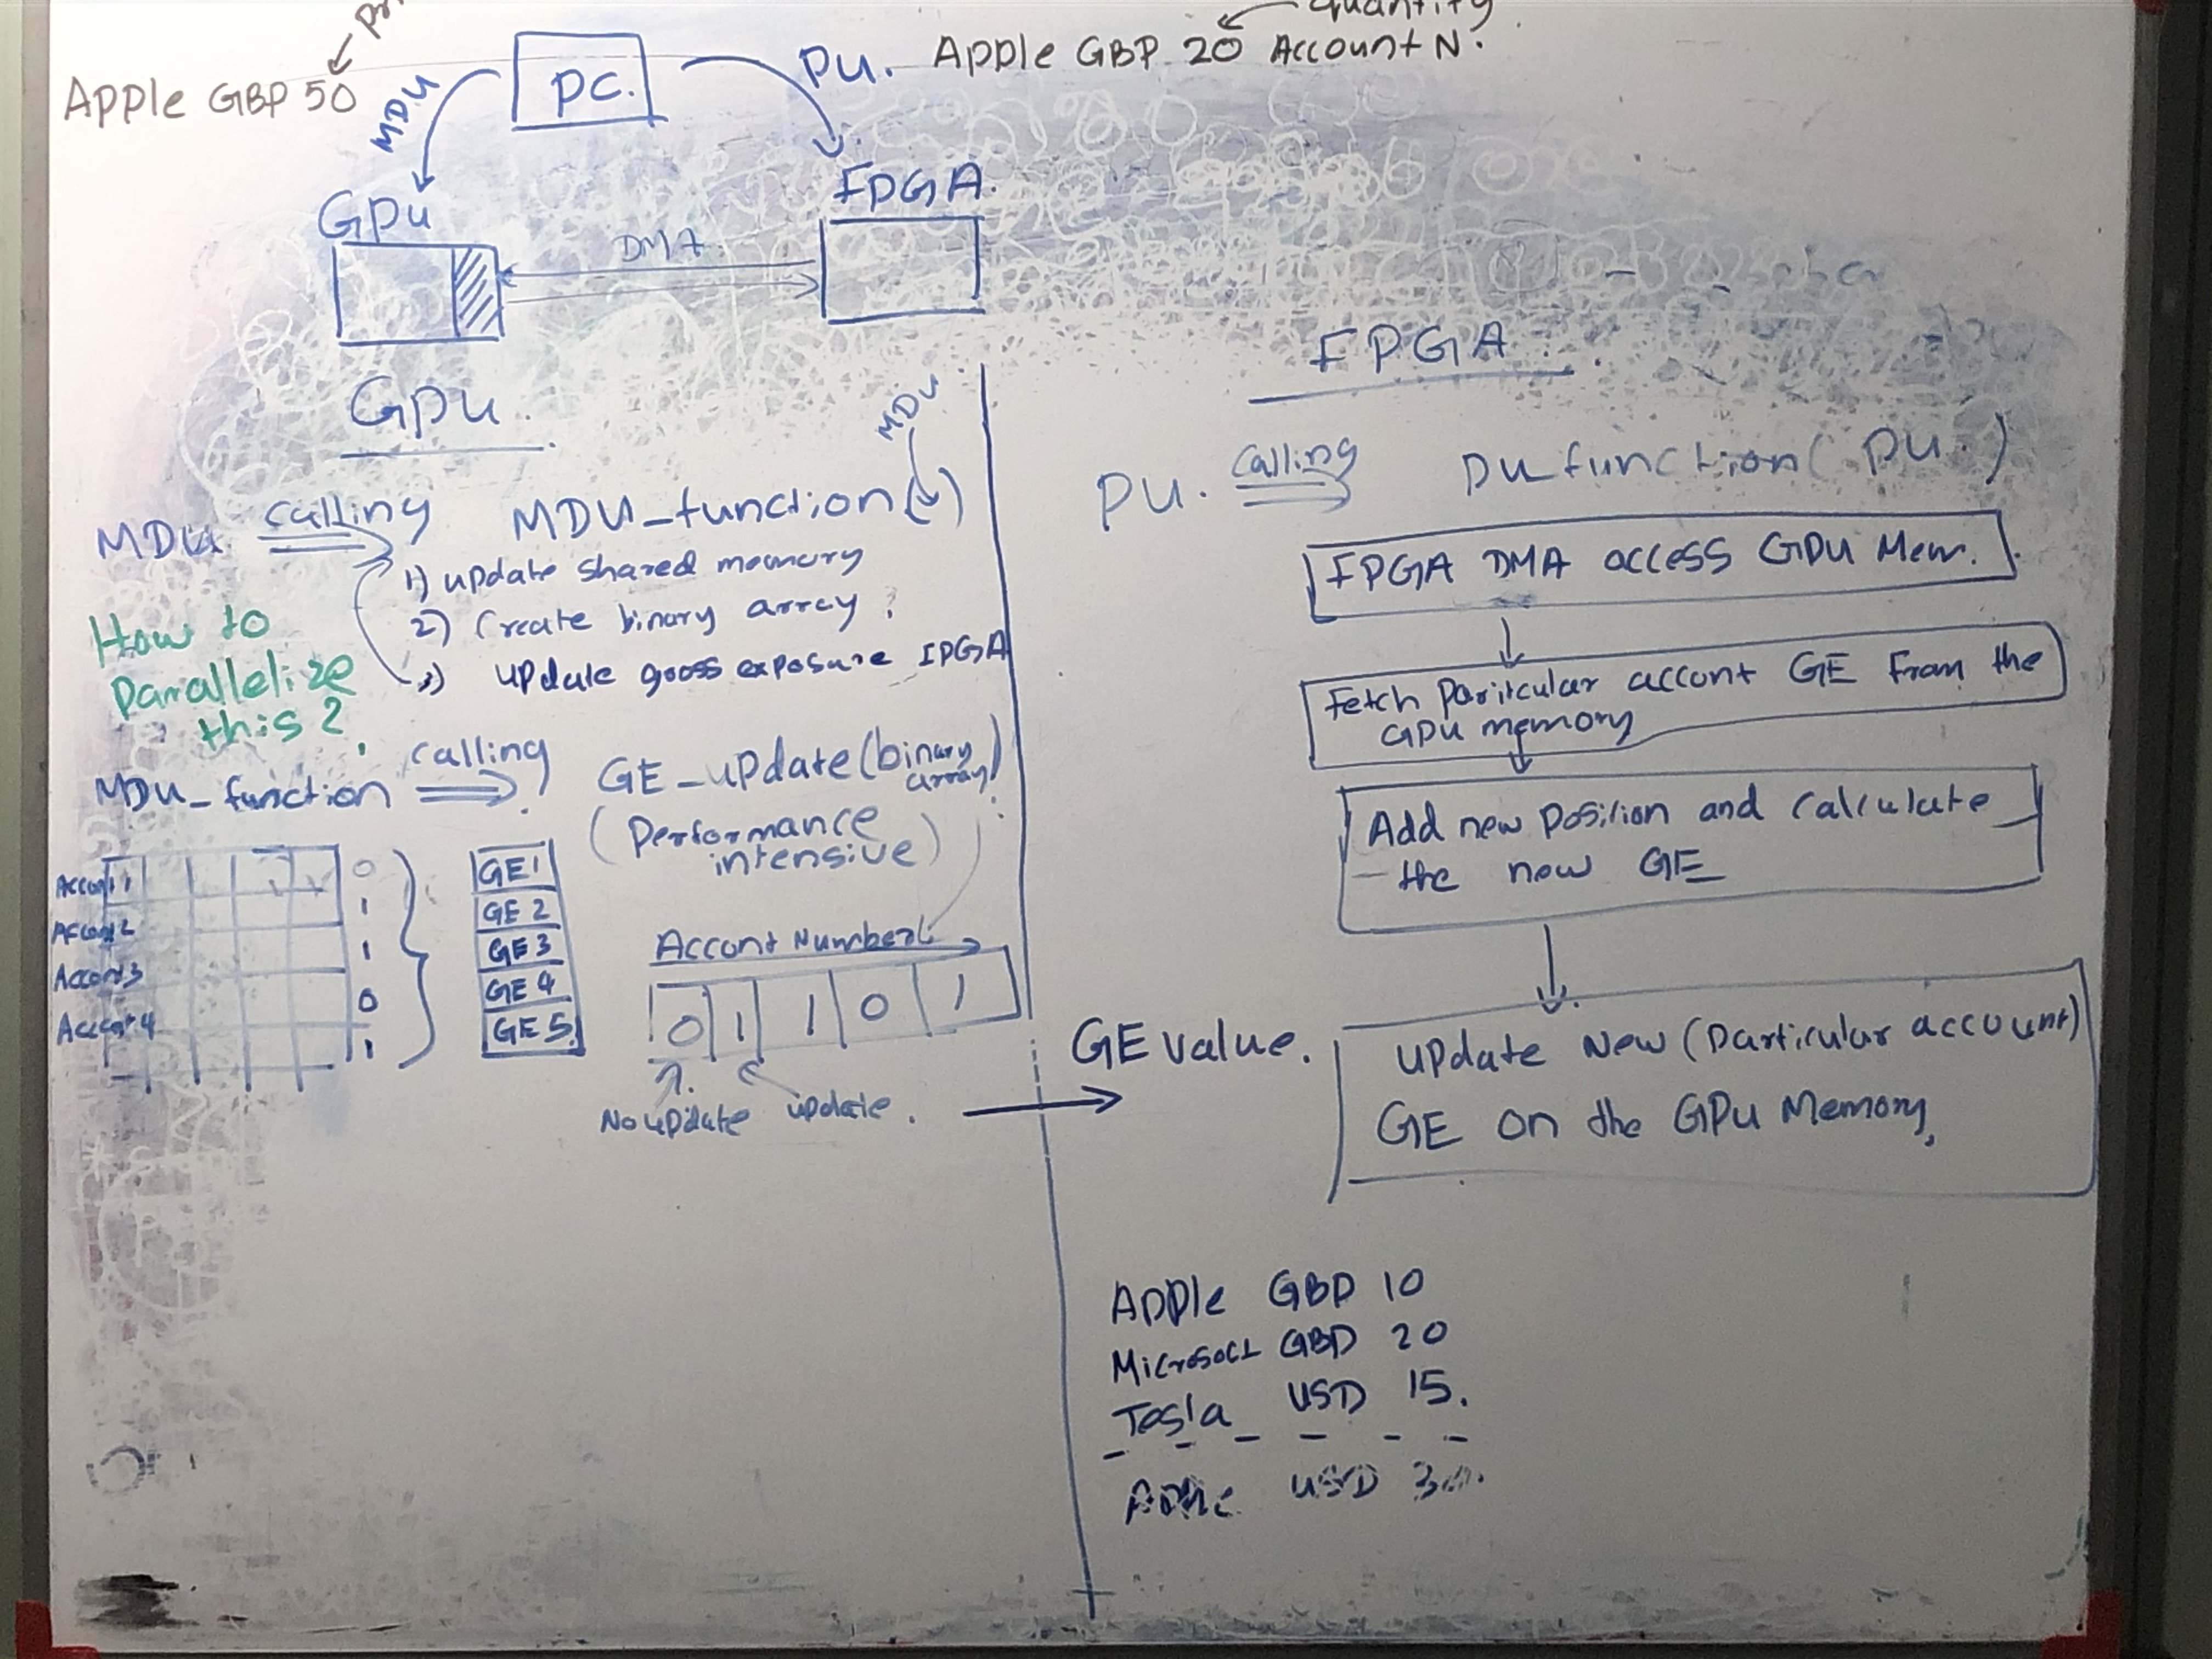 quantity
Apple GBP 50
MDU
PC.
PU.
Apple GBP 20 Account N.
GPU
FPGA.
DMA
GPU.
MDU
MDU calling MDU_function( )
1) update shared memory
2) Create binary array ?
3) update gross exposure FPGA
How to
Parallelize
this?
MDU_function calling GE_update(binary
array)
(Performance
intensive)
Account 1
Account 2
Accont 3
Account 4
0
1
1
0
1
GE1
GE 2
GE 3
GE 4
GE 5
Accont Number
0 1 1 0 1
No update update.
FPGA
PU. Calling PU_function( PU. )
FPGA DMA access GPU Mem.
Fetch Pariticular accont GE From the
GPU memory
Add new position and calculate
the new GE
GE value.
update New (Particular account)
GE on the GPU Memory,
Apple GBP 10
Microsoct GBP 20
Tesla USD 15.
Apple USD